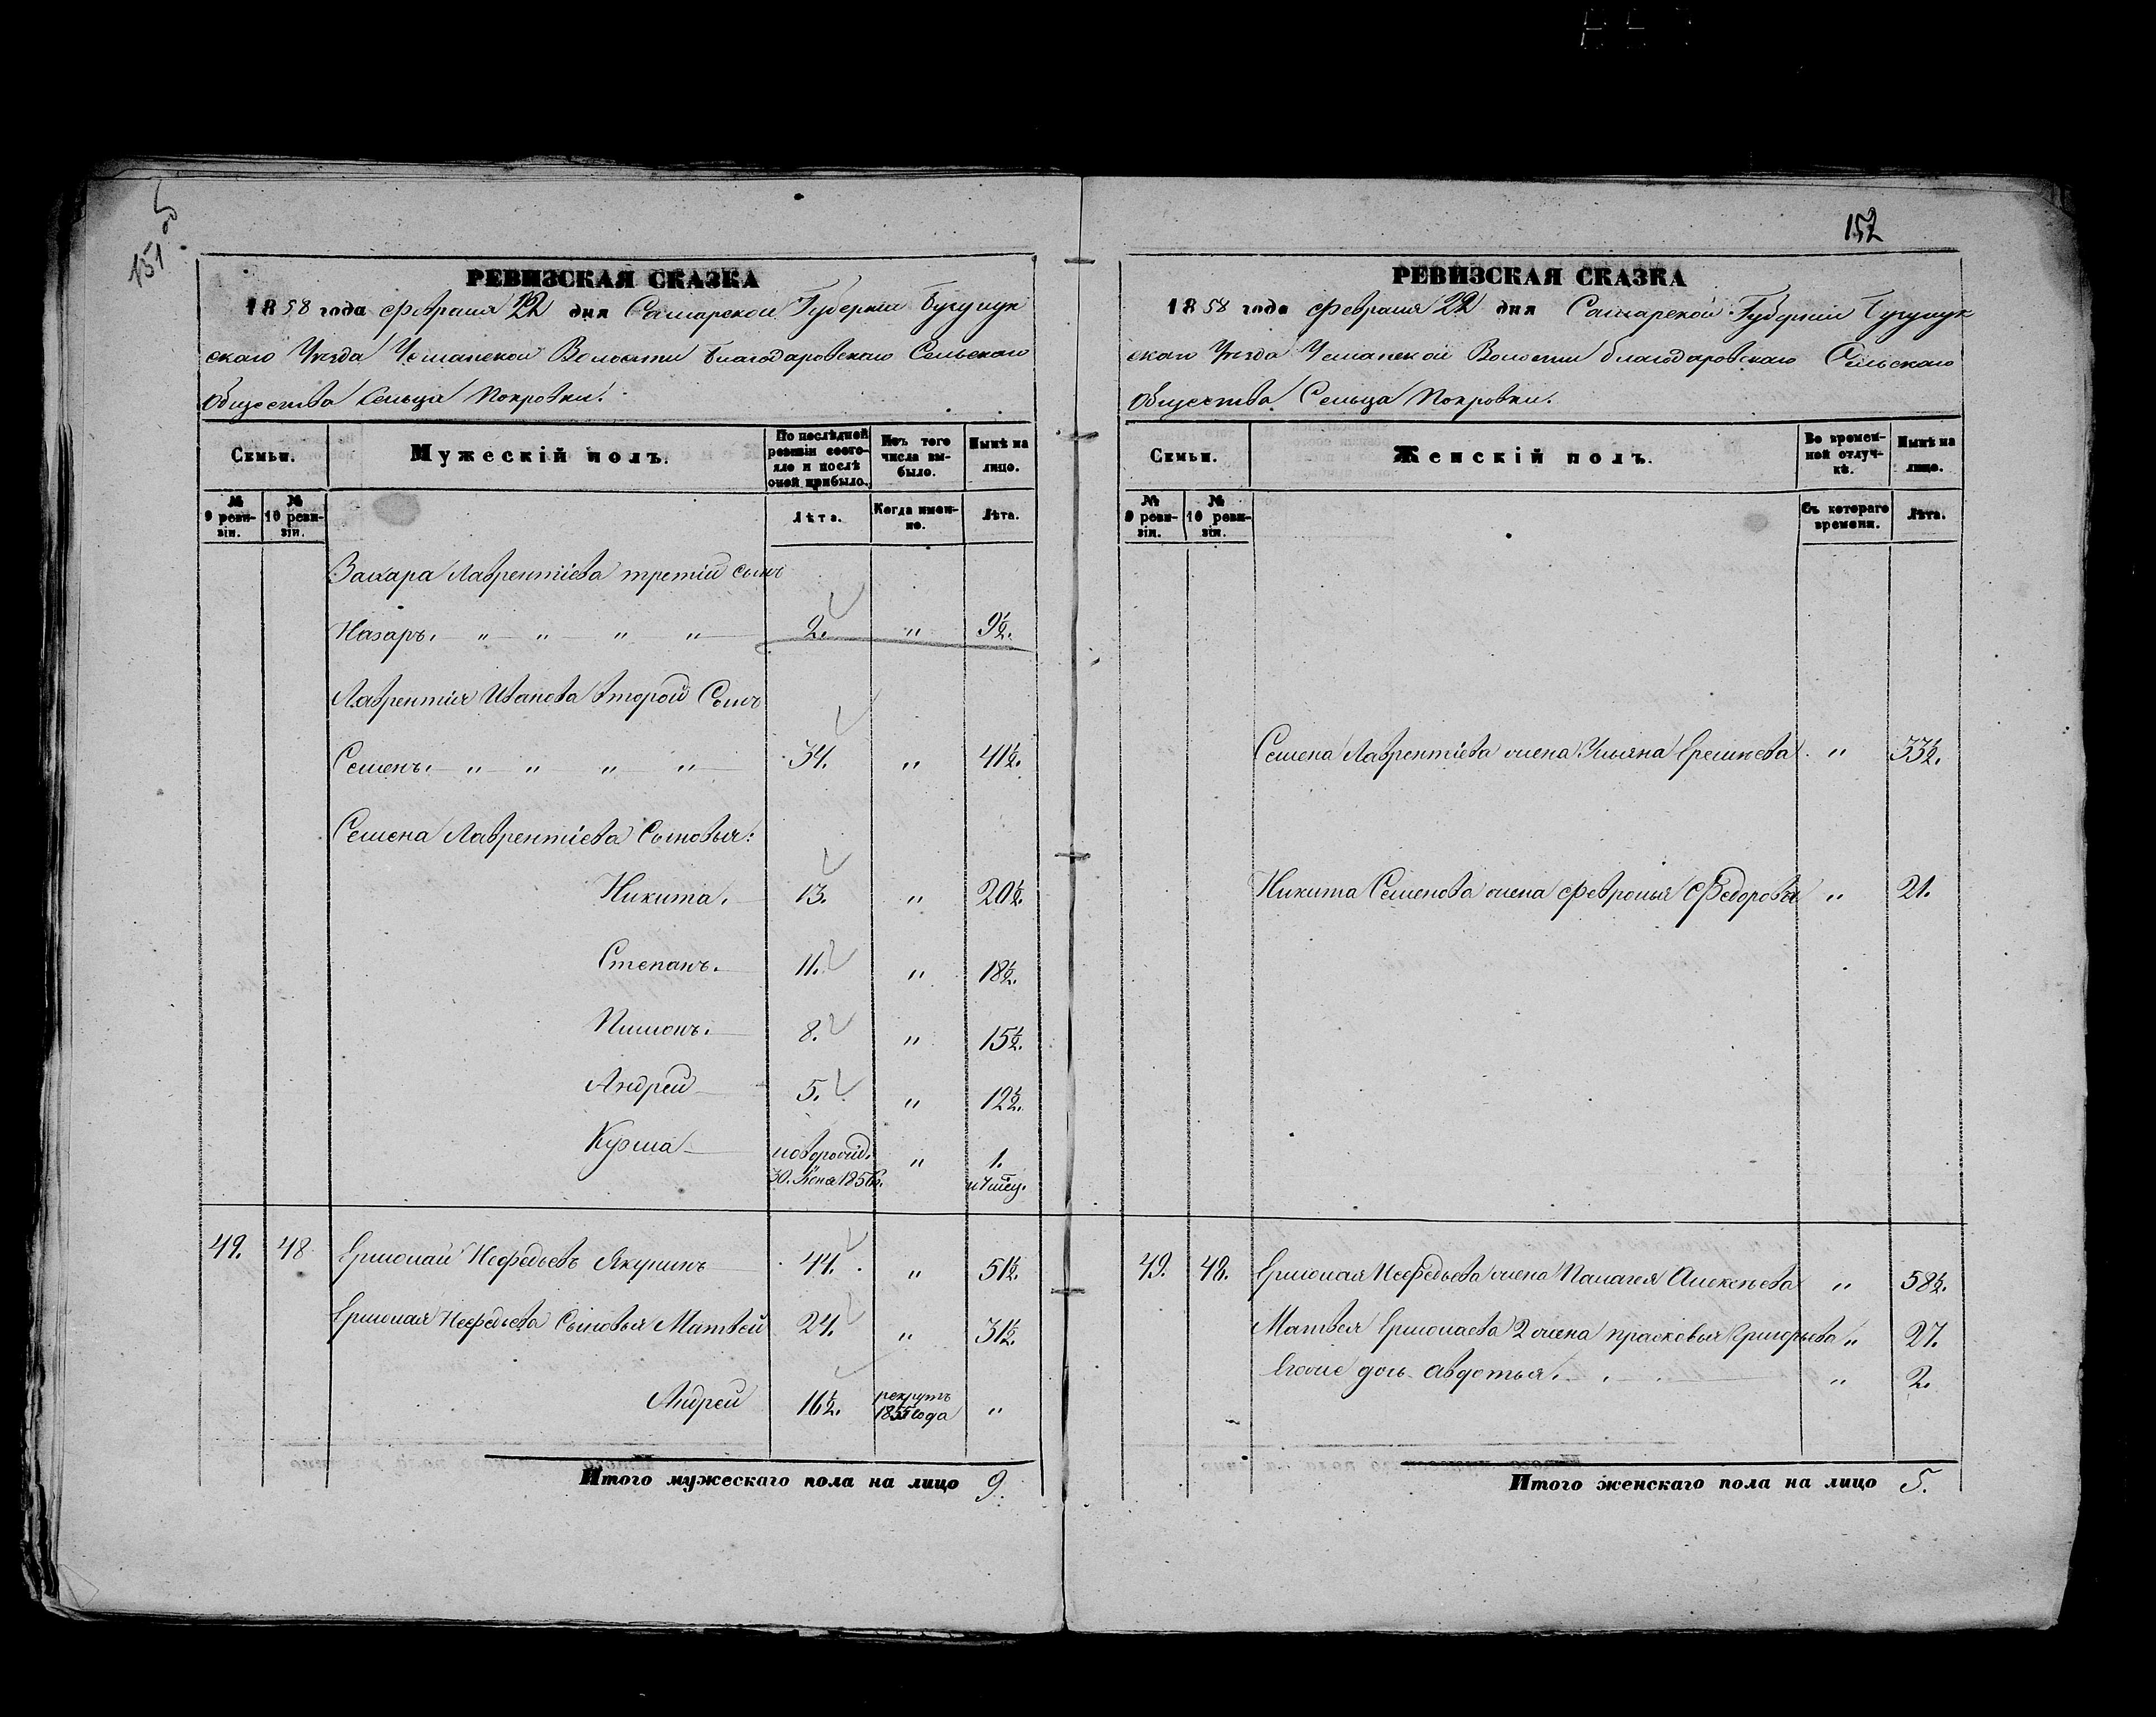 151
РЕВИЗСКАЯ СКАЗКА
1858 года Февраля 22 дня Самарской Губерніи Бугурук
скаго Уезда Волости Благодаровскаго Сельскаго
Общества Сельца Покровки.
Семьи.
Мужескій полъ.
По последней ревизіи состояло и после оной прибыло.
Изъ того числа выбыло.
Ныне на лицо.
№ 9 ревизіи.
№ 10 ревизіи.
Лѣта.
Когда именно.
Лѣта.
Захара Лаврентіева третій сынъ
Назаръ. " " " " 2. " 9½.
Лаврентія Иванова второй Сынъ
Семенъ. " " " " 34. " 41½.
Семена Лаврентіева Сыновья:
Никита. 13. " 20½.
Степанъ. 11. " 18½.
Пимонъ. 8. " 15½.
Андрей 5. " 12½.
Кузма новорожд. " 1.
30. Іюня 1856г. и 7 мец.
49. 48 Ермолай Нефедьевъ Якунинъ 44. " 51½.
Ермолая Нефедьева Сыновья Матвей 24. " 31½.
Андрей 16½. рекрутъ "
1855 года
Итого мужескаго пола на лицо 9.
152
РЕВИЗСКАЯ СКАЗКА
1858 года Февраля 22 дня Самарской Губерніи Бугурук
скаго Уезда Волости Благодаровскаго Сельскаго
Общества Сельца Покровки.
Семьи.
Женскій полъ.
Во временной отлучкѣ.
Нынѣ на лицо.
№ 9 ревизіи.
№ 10 ревизіи.
Съ котораго времени.
Лѣта.
Семена Лаврентіева жена Ульяна Еремѣева " 33½.
Никита Семенова жена Февронья Федорова " 21.
49. 48. Ермолая Нефедьева жена Палагея Алексѣева " 58½.
Матвея Ермолаева 2 жена прасковья Григорьева " 27.
Егоже дочь Авдотья. " 2.
Итого женскаго пола на лицо 5.